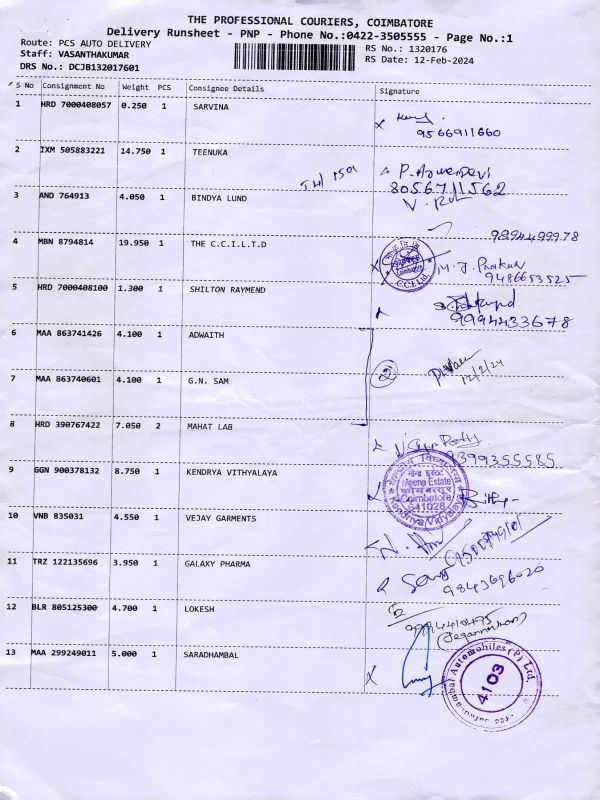 THE PROFESSIONAL COURIERS, COIMBATORE
Delivery Runsheet - PNP - Phone No.:0422-3505555 - Page No.:1
Route: PCS AUTO DELIVERY
Staff: VASANTHAKUMAR
DRS No.: DCJB132017601
RS No.: 1320176
RS Date: 12-Feb-2024
S No Consignment No Weight PCS Consignee Details Signature
1 HRD 7000408057 0.250 1 SARVINA
9566911660
2 IXM 505883221 14.750 1 TEENUKA
8056711562
3 AND 764913 4.050 1 BINDYA LUND
9894499978
4 MBN 8794814 19.950 1 THE C.C.I.L.T.D
C.C.I. Ltd.
M. J. Prakash
9486653525
5 HRD 7000408100 1.300 1 SHILTON RAYMEND
9994433678
6 MAA 863741426 4.100 1 ADWAITH
12/2/24
7 MAA 863740601 4.100 1 G.N. SAM
8 HRD 390767422 7.050 2 MAHAT LAB
9399355585
9 GGN 900378132 8.750 1 KENDRYA VITHYALAYA
Coimbatore
641028
Kendriya Vidyalaya
10 VNB 835031 4.550 1 VEJAY GARMENTS
11 TRZ 122135696 3.950 1 GALAXY PHARMA
9843696020
12 BLR 805125300 4.700 1 LOKESH
(Jegannathan)
13 MAA 299249011 5.000 1 SARADHAMBAL
Automobiles (P) Ltd.
4103